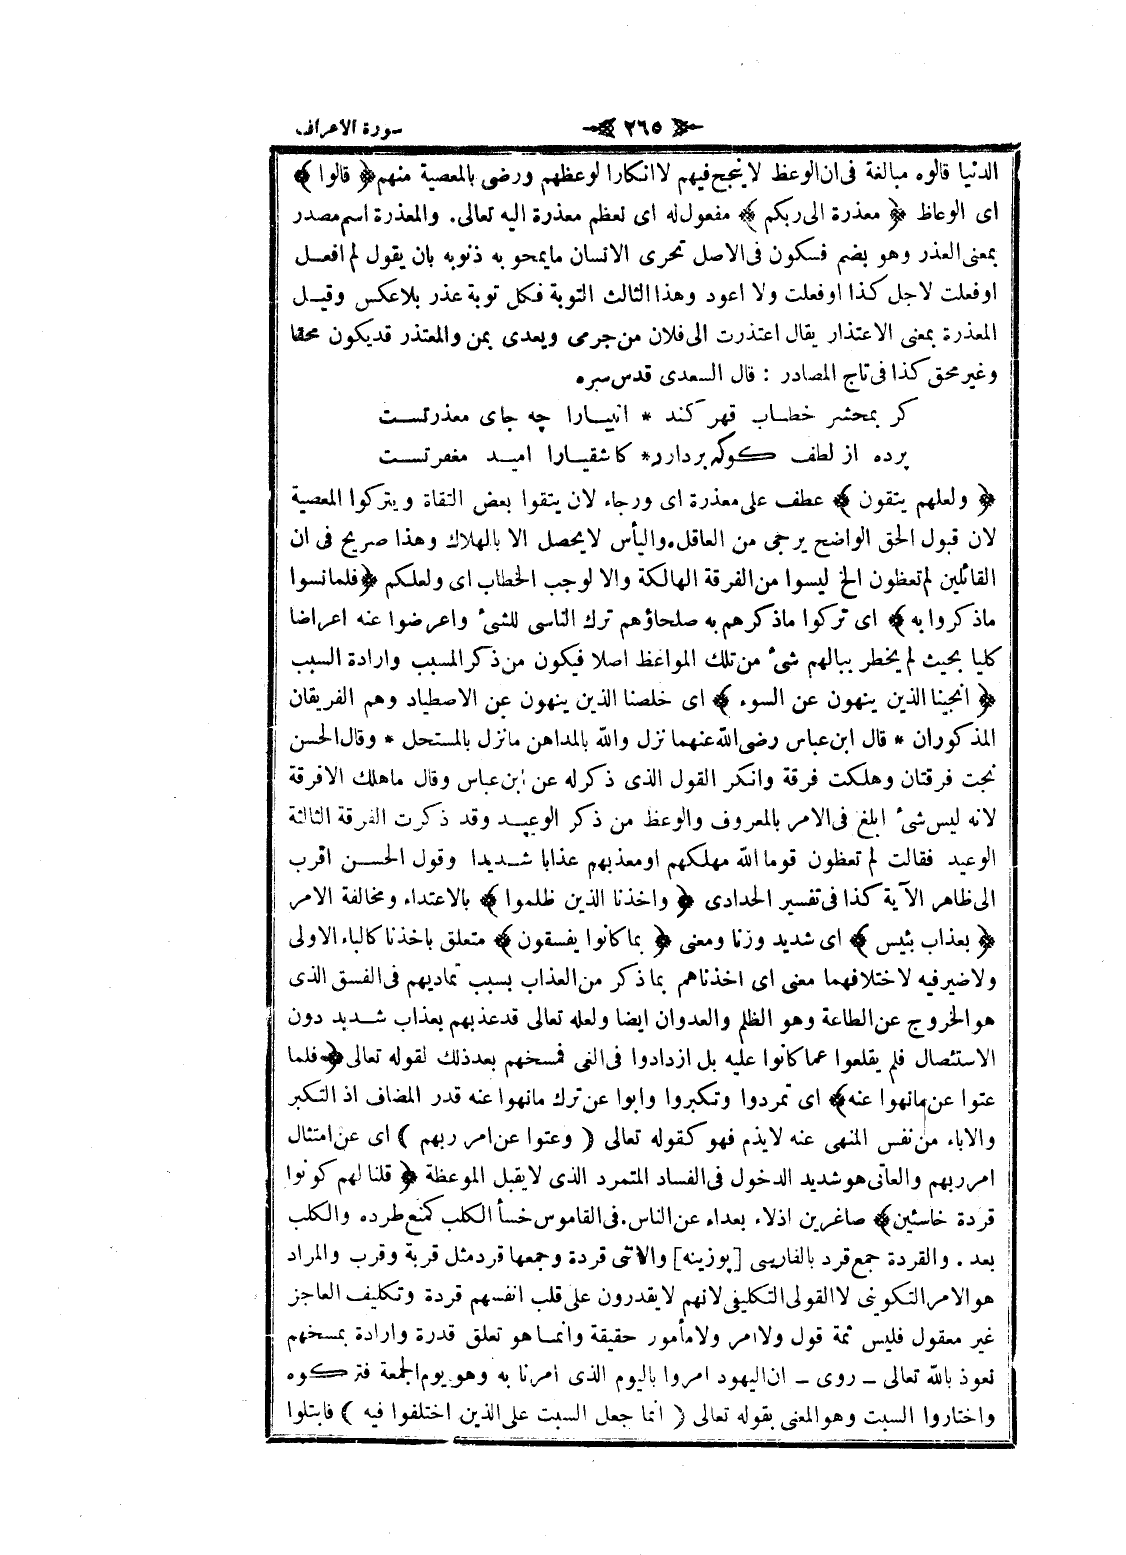 سورة الاعراف ﴿ ٢٦٥ ﴾
الدنيا قالوه مبالغة فى ان الوعظ لا ينجح فيهم لا انكارا لوعظهم ورضى بالمعصية منهم ﴿ قالوا ﴾
اى الوعاظ ﴿ معذرة الى ربكم ﴾ مفعول له اى نعظم معذرة اليه تعالى. والمعذرة اسم مصدر
بمعنى العذر وهو بضم فسكون فى الاصل تحرى الانسان ما يمحو به ذنوبه بان يقول لم افعل
او فعلت لاجل كذا او فعلت ولا اعود وهذا الثالث التوبة فكل توبة عذر بلا عكس وقيل
المعذرة بمعنى الاعتذار يقال اعتذرت الى فلان من جرمى ويعدى بمن والمعتذر قد يكون محقا
وغير محق كذا فى تاج المصادر : قال السعدى قدس سره
كر بمحشر خطاب قهر كند * انبيارا چه جاى معذرتست
پرده از لطف كوكه بردارد * كاشقيارا اميد مغفرتست
﴿ ولعلهم يتقون ﴾ عطف على معذرة اى ورجاء لان يتقوا بعض التقاة ويتركوا المعصية
لان قبول الحق الواضح يرجى من العاقل. واليأس لا يحصل الا بالهلاك وهذا صريح فى ان
القائلين لم تعظون الخ ليسوا من الفرقة الهالكة والا لوجب الخطاب اى ولعلكم ﴿ فلما نسوا
ما ذكروا به ﴾ اى تركوا ما ذكرهم به صلحاؤهم ترك الناسى للشئ واعرضوا عنه اعراضا
كليا بحيث لم يخطر ببالهم شئ من تلك المواعظ اصلا فيكون من ذكر المسبب وارادة السبب
﴿ انجينا الذين ينهون عن السوء ﴾ اى خلصنا الذين ينهون عن الاصطياد وهم الفريقان
المذكوران * قال ابن عباس رضى الله عنهما نزل والله بالمداهن ما نزل بالمستحل * وقال الحسن
نجت فرقتان وهلكت فرقة وانكر القول الذى ذكر له عن ابن عباس وقال ما هلك الا فرقة
لانه ليس شئ ابلغ فى الامر بالمعروف والوعظ من ذكر الوعيد وقد ذكرت الفرقة الثالثة
الوعيد فقالت لم تعظون قوما الله مهلكهم او معذبهم عذابا شديدا وقول الحسن اقرب
الى ظاهر الآية كذا فى تفسير الحدادى ﴿ واخذنا الذين ظلموا ﴾ بالاعتداء ومخالفة الامر
﴿ بعذاب بئيس ﴾ اى شديد وزنا ومعنى ﴿ بما كانوا يفسقون ﴾ متعلق باخذنا كالباء الاولى
ولا ضير فيه لاختلافهما معنى اى اخذناهم بما ذكر من العذاب بسبب تماديهم فى الفسق الذى
هو الخروج عن الطاعة وهو الظلم والعدوان ايضا ولعله تعالى قد عذبهم بعذاب شديد دون
الاستئصال فلم يقلعوا عما كانوا عليه بل ازدادوا فى الغى فمسخهم بعد ذلك لقوله تعالى ﴿ فلما
عتوا عن ما نهوا عنه ﴾ اى تمردوا وتكبروا وابوا عن ترك ما نهوا عنه قدر المضاف اذ التكبر
والاباء من نفس المنهى عنه لا يذم فهو كقوله تعالى ( وعتوا عن امر ربهم ) اى عن امتثال
امر ربهم والعاتى هو شديد الدخول فى الفساد المتمرد الذى لا يقبل الموعظة ﴿ قلنا لهم كونوا
قردة خاسئين ﴾ صاغرين اذلاء بعداء عن الناس. فى القاموس خسأ الكلب كمنع طرده والكلب
بعد . والقردة جمع قرد بالفارسى [پوزينه] والانثى قردة وجمعها قرد مثل قربة وقرب والمراد
هو الامر التكوينى لا القولى التكليفى لانهم لا يقدرون على قلب انفسهم قردة وتكليف العاجز
غير معقول فليس ثمة قول ولا امر ولا مأمور حقيقة وانما هو تعلق قدرة وارادة بمسخهم
نعوذ بالله تعالى ــ روى ــ ان اليهود امروا باليوم الذى امرنا به وهو يوم الجمعة فتركوه
واختاروا السبت وهو المعنى بقوله تعالى ( انما جعل السبت على الذين اختلفوا فيه ) فابتلوا